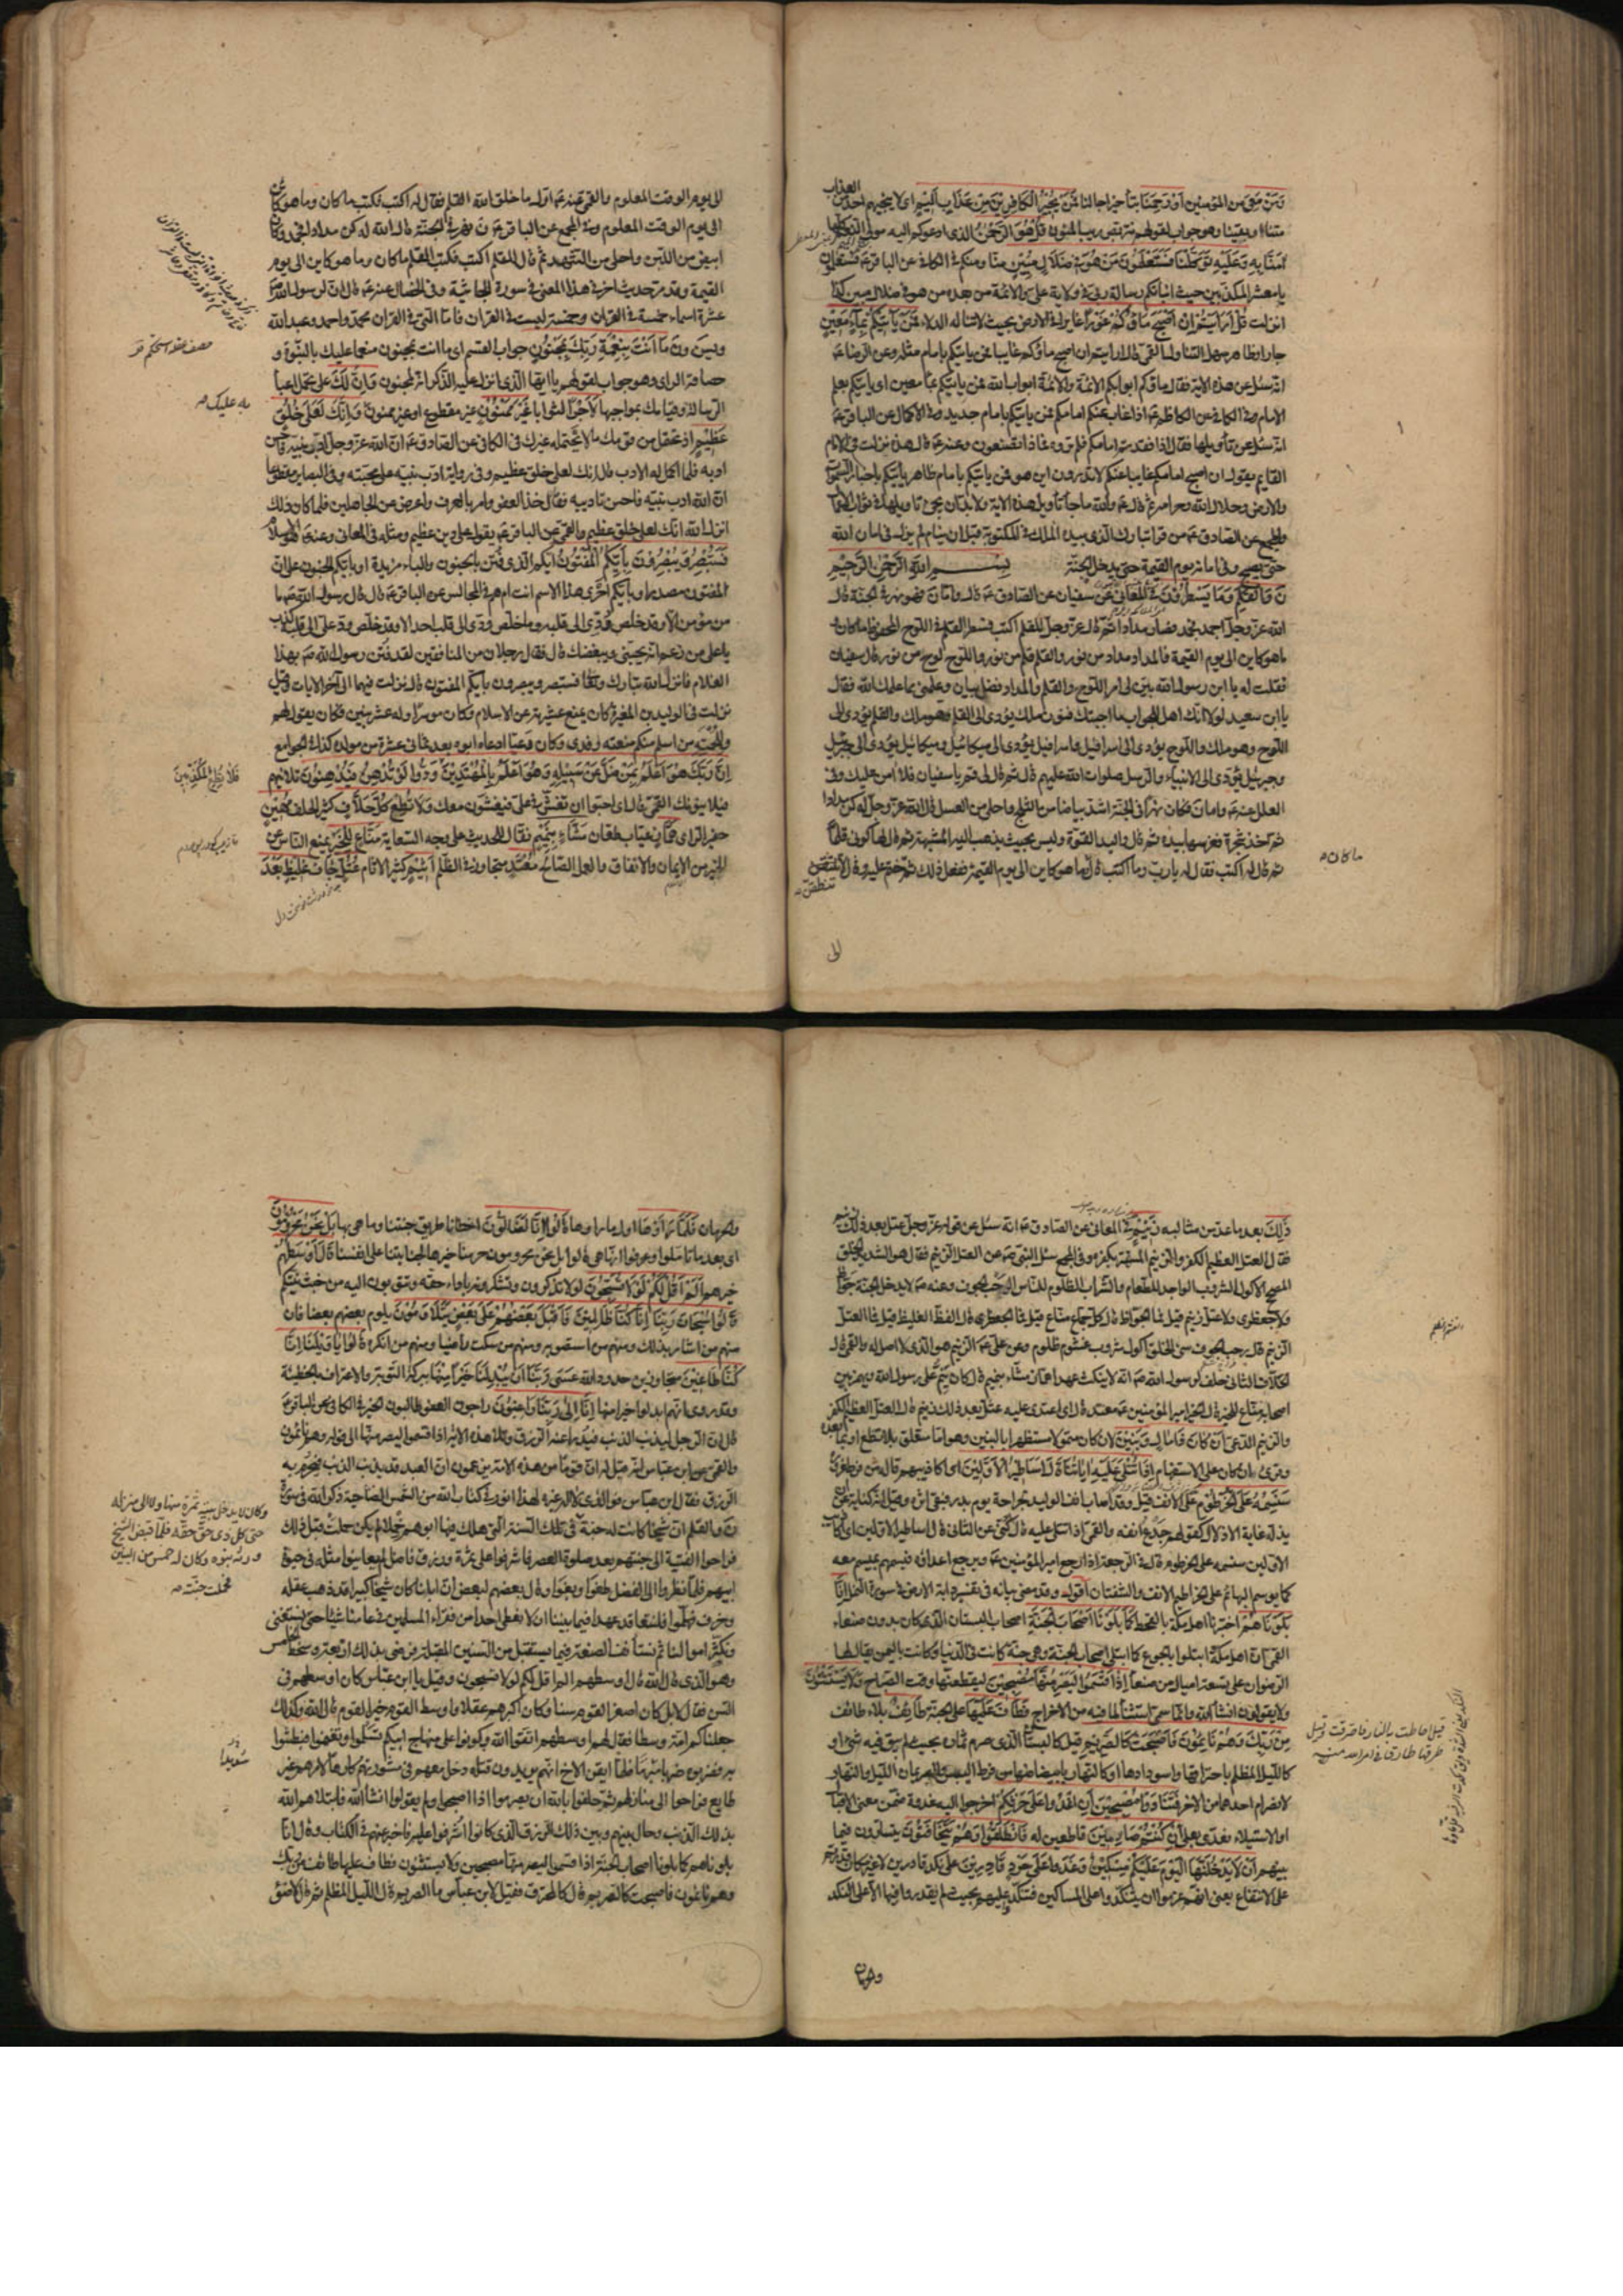 وَمَنْ مَعِيَ من المؤمنين أَوْ رَحِمَنَا بتأخير آجالنا فَمَنْ يُجِيرُ الْكَافِرِينَ مِنْ عَذَابٍ أَلِيمٍ اى لا ينجيهم احد من العذاب
متنا او بقينا وهو جواب لقولهم نتربص به ريب المنون قُلْ هُوَ الرَّحْمٰنُ الذى ادعوكم اليه مولى النعم كلها
آمَنَّا بِهِ وَعَلَيْهِ تَوَكَّلْنَا فَسَتَعْلَمُونَ مَنْ هُوَ فِي ضَلَالٍ مُبِينٍ منّا ومنكم فى الكافى عن الباقر ع فستعلمون
يا معشر المكذبين حيث انبأتكم رسالة ربى فى ولاية على والائمة من بعده من هو فى ضلال مبين كذا
انزلت قُلْ أَرَأَيْتُمْ إِنْ أَصْبَحَ مَاؤُكُمْ غَوْراً غايرا فى الارض بحيث لا تناله الدلاء فَمَنْ يَأْتِيكُمْ بِمَاءٍ مَعِينٍ
جار او ظاهر سهل التناول القمى قال ارايتم ان اصبح ماؤكم غايبا فمن ياتيكم بامام مثله وعن الرضا ع
انه سئل عن هذه الاية فقال ماؤكم ابوابكم الائمة والائمة ابواب الله فمن ياتيكم بماء معين اى ياتيكم بعلم
الامام وفى الكافى عن الكاظم ع اذا غاب عنكم امامكم فمن ياتيكم بامام جديد وفى الاكمال عن الباقر ع
انه سئل عن تأويلها فقال اذا فقدتم امامكم فلم تروه فماذا تصنعون وعنه ع قال هذه نزلت فى الامام
القايم يقول ان اصبح امامكم غايبا عنكم لا تدرون اين هو فمن ياتيكم بامام ظاهر ياتيكم باخبار السموات
والارض وحلال الله وحرامه ثم قال ع والله ما جاء تأويل هذه الاية ولا بد ان يجئ تاويلها فى ثواب الاعمال
والمجمع عن الصادق ع من قرأ تبارك الذى بيده الملك فى المكتوبة قبل ان ينام لم يزل فى امان الله
حتى يصبح وفى امانه يوم القيمة حتى يدخل الجنة بسم الله الرحمن الرحيم
نٓ وَالْقَلَمِ وَمَا يَسْطُرُونَ فى المعانى عن سفيان عن الصادق ع قال واما ن فهو نهر فى الجنة قال
الله عز وجل اجمد فجمد فصار مدادا ثم قال عز وجل للقلم اكتب فسطر القلم فى اللوح المحفوظ ما كان و
ما هو كاين الى يوم القيمة فالمداد مداد من نور والقلم قلم من نور واللوح لوح من نور قال سفيان
فقلت له يا ابن رسول الله بيّن لى امر اللوح والقلم والمداد فضل بيان وعلمنى مما علمك الله فقال
يا ابن سعيد لولا انك اهل للجواب ما اجبتك فنون ملك يؤدى الى القلم وهو ملك والقلم يؤدى الى
اللوح وهو ملك واللوح يؤدى الى اسرافيل واسرافيل يؤدى الى ميكائيل وميكائيل يؤدى الى جبرئيل
وجبرئيل يؤدى الى الانبياء والرسل صلوات الله عليهم قال ثم قال لى قم يا سفيان فلا آمن عليك وفى
العلل عنه ع واما ن فكان نهرا فى الجنة اشد بياضا من الثلج واحلى من العسل قال الله عز وجل له كن مدادا
ثم اخذ شجرة فغرسها بيده ثم قال واليد القوة وليس بحيث يذهب اليه المشبهة ثم قال لها كونى قلما
ثم قال له اكتب فقال له يا رب وما اكتب قال ما هو كاين الى يوم القيمة ففعل ذلك ثم ختم عليه وقال لا تنطقن
ما كان و
الى
الى يوم الوقت المعلوم والقمى عنه ع اول ما خلق الله القلم فقال له اكتب فكتب ما كان وما هو كاين
الى يوم الوقت المعلوم وفى المجمع عن الباقر ع ن نهر فى الجنة قال الله له كن مدادا فجمد وكان
ابيض من اللبن واحلى من الشهد ثم قال للقلم اكتب فكتب القلم ما كان وما هو كاين الى يوم
القيمة وقد مر حديث اخر فى هذا المعنى فى سورة الجاثية وفى الخصال عنه ع قال ان لرسول الله ص
عشرة اسماء خمسة فى القران وخمسة ليست فى القران فاما التى فى القران محمد واحمد وعبد الله
ويس ون مَا أَنْتَ بِنِعْمَةِ رَبِّكَ بِمَجْنُونٍ جواب القسم اى ما انت بمجنون منعما عليك بالنبوة و
حصافة الراى وهو جواب لقولهم يا ايها الذى انزل عليه الذكر انك لمجنون وَإِنَّ لَكَ على تحمل اعباء
الرسالة وقيامك بمواجبها لَأَجْراً لثوابا غَيْرَ مَمْنُونٍ غير مقطوع او غير ممنون وَإِنَّكَ لَعَلىٰ خُلُقٍ
عَظِيمٍ اذ تحتمل من قومك ما لا يحتمله غيرك فى الكافى عن الصادق ع ان الله عز وجل ادب نبيه فاحسن
ادبه فلما اكمل له الادب قال انك لعلى خلق عظيم وفى رواية ادب نبيه على محبته وفى البصاير مقطوعا
ان الله ادب نبيه فاحسن تاديبه فقال خذ العفو وامر بالعرف واعرض عن الجاهلين فلما كان ذلك
انزل الله انك لعلى خلق عظيم والقمى عن الباقر ع يقول على دين عظيم ومثله فى المعانى وعنه ع هو الاسلام
فَسَتُبْصِرُ وَيُبْصِرُونَ بِأَيِّكُمُ الْمَفْتُونُ ايكم الذى فتن بالجنون والباء مزيدة او بايكم الجنون على ان
المفتون مصدر او بأيكم احرى هذا الاسم انت ام هم فى المجالس عن الباقر ع قال قال رسول الله ص ما
من مؤمن الا وقد خلص ودى الى قلبه وما خلص ودى الى قلب احد الا وقد خلص ود على الى قلبه كذب
يا على من زعم انه يحبنى ويبغضك قال فقال رجلان من المنافقين لقد فتن رسول الله ص بهذا
الغلام فانزل الله تبارك وتعالى فستبصر ويبصرون بأيكم المفتون قال نزلت فيهما الى آخر الايات وقيل
نزلت فى الوليد بن المغيرة كان يمنع عشيرته عن الاسلام وكان موسرا وله عشر بنين فكان يقول لهم
وللحمته من اسلم منكم منعته رفدى وكان دعيا ادعاه ابوه بعد ثمانى عشرة من مولده كذا فى الجوامع
إِنَّ رَبَّكَ هُوَ أَعْلَمُ بِمَنْ ضَلَّ عَنْ سَبِيلِهِ وَهُوَ أَعْلَمُ بِالْمُهْتَدِينَ وَدُّوا لَوْ تُدْهِنُ فَيُدْهِنُونَ تلاينهم
فيلاينونك القمى قال اى احبوا ان تغش فى على فيغشون معك وَلَا تُطِعْ كُلَّ حَلَّافٍ كثير الحلف مَهِينٍ
حقير الراى هَمَّازٍ عياب طعان مَشَّاءٍ بِنَمِيمٍ نقال للحديث على وجه السعاية مَنَّاعٍ لِلْخَيْرِ يمنع الناس عن
الخير من الايمان والانفاق والعمل الصالح مُعْتَدٍ متجاوز فى الظلم أَثِيمٍ كثير الاثام عُتُلٍّ جاف غليظ بَعْدَ
به عليك ص
فَلَا تُطِعِ الْمُكَذِّبِينَ
ذٰلِكَ بعد ما عد من مثالبه زَنِيمٍ فى المعانى عن الصادق ع انه سئل عن قوله عز وجل عتل بعد ذلك زنيم
فقال العتل العظيم الكفر والزنيم المستهتر بكفره وفى المجمع سئل النبى ص عن العتل الزنيم فقال هو الشديد الخلق
المصحح الاكول الشروب الواجد للطعام والشراب الظلوم للناس الرحب الجوف وعنه ص لا يدخل الجنة جواظ
ولا جعظرى ولا عتل زنيم قيل فما الجواظ قال كل جماع مناع قيل فما الجعظرى قال الفظ الغليظ قيل فما العتل
الزنيم قال رحب الجوف سئ الخلق اكول شروب غشوم ظلوم وعن على ع الزنيم هو الذى لا اصل له والقمى قال
الحلاف الثانى حلف لرسول الله ص انه لا ينكث عهدا هماز مشاء بنميم قال كان ينم على رسول الله ويهمز بين
اصحابه مناع للخير قال الخير امير المؤمنين ع معتد قال اى اعتدى عليه عتل بعد ذلك زنيم قال العتل العظيم الكفر
والزنيم الدعى أَنْ كَانَ ذَا مَالٍ وَبَنِينَ لان كان متمولا مستظهرا بالبنين وهو اما متعلق بلا تطع او بما بعده
وقرئ ءان كان على الاستفهام إِذَا تُتْلىٰ عَلَيْهِ آيَاتُنَا قَالَ أَسَاطِيرُ الْأَوَّلِينَ اى اكاذيبهم قاله من فرط غروره
سَنَسِمُهُ عَلَى الْخُرْطُومِ على الانف قيل وقد اصاب انف الوليد جراحة يوم بدر فبقى اثره وقيل انه كناية عن ان
يذله غاية الاذلال كقولهم جدع انفه والقمى اذا تتلى عليه قال كنى عن الثانى قال اساطير الاولين اى اكاذيب
الاولين سنسمه على الخرطوم قال فى الرجعة اذا رجع امير المؤمنين ع ويرجع اعداؤه فيسمهم بميسم معه
كما يوسم البهائم على الخراطيم الانف والشفتان اقول وقد مضى بيانه فى تفسير دابة الارض فى سورة النمل إِنَّا
بَلَوْنَاهُمْ اختبرنا اهل مكة بالقحط كَمَا بَلَوْنَا أَصْحَابَ الْجَنَّةِ اصحاب البستان الذى كان بدون صنعاء
القمى ان اهل مكة ابتلوا بالجوع كما ابتلى اصحاب الجنة وهى جنة كانت فى الدنيا وكانت باليمن يقال لها
الرضوان على تسعة اميال من صنعاء إِذْ أَقْسَمُوا لَيَصْرِمُنَّهَا مُصْبِحِينَ ليقطعنها وقت الصباح وَلَا يَسْتَثْنُونَ
ولا يقولون انشاء الله وانما سمى استثناء لما فيه من الاخراج فَطَافَ عَلَيْهَا على الجنة طَائِفٌ بلاء طائف
مِنْ رَبِّكَ وَهُمْ نَائِمُونَ فَأَصْبَحَتْ كَالصَّرِيمِ قيل كالبستان الذى صرم ثماره بحيث لم يبق فيه شئ او
كالليل المظلم باحتراقها واسودادها او كالنهار بابيضاضها من فرط اليبس والصريمان الليل والنهار
لانصرام احدهما من الاخر فَتَنَادَوْا مُصْبِحِينَ أَنِ اغْدُوا عَلىٰ حَرْثِكُمْ اخرجوا اليه غدوة ضمن معنى الاقبال
او الاستيلاء فعدى بعلى إِنْ كُنْتُمْ صَارِمِينَ قاطعين له فَانْطَلَقُوا وَهُمْ يَتَخَافَتُونَ يتسارون فيما
بينهم أَنْ لَا يَدْخُلَنَّهَا الْيَوْمَ عَلَيْكُمْ مِسْكِينٌ وَغَدَوْا عَلىٰ حَرْدٍ قَادِرِينَ على نكد قادرين لا غير مكان قدرتهم
على الانتفاع يعنى انهم عزموا ان يتنكدوا على المساكين فتنكد عليهم بحيث لم يقدروا فيها الا على النكد
قيل احاطت بالنار فاحترقت وقيل
طرقها طارق من امر الله منه
وحرمان
وحرمان فَلَمَّا رَأَوْهَا اول ما راوها قَالُوا إِنَّا لَضَالُّونَ اخطأنا طريق جنتنا وما هى بها بَلْ نَحْنُ مَحْرُومُونَ
اى بعد ما تأملوا وعرفوا انها هى قالوا بل نحن محرومون حرمنا خيرها لجنايتنا على انفسنا قَالَ أَوْسَطُهُمْ
خيرهم أَلَمْ أَقُلْ لَكُمْ لَوْلَا تُسَبِّحُونَ لولا تذكرون وتشكرونه باداء حقه وتتوبون اليه من خبث نيتكم
قَالُوا سُبْحَانَ رَبِّنَا إِنَّا كُنَّا ظَالِمِينَ فَأَقْبَلَ بَعْضُهُمْ عَلىٰ بَعْضٍ يَتَلَاوَمُونَ يلوم بعضهم بعضا فان
منهم من اشار بذلك ومنهم من استصوبه ومنهم من سكت راضيا ومنهم من انكره قَالُوا يَا وَيْلَنَا إِنَّا
كُنَّا طَاغِينَ متجاوزين حدود الله عَسىٰ رَبُّنَا أَنْ يُبْدِلَنَا خَيْراً مِنْهَا ببركة التوبة والاعتراف بالخطيئة
وقد روى انهم ابدلوا خيرا منها إِنَّا إِلىٰ رَبِّنَا رَاغِبُونَ راجون العفو طالبون الخير فى الكافى عن الباقر ع
قال ان الرجل ليذنب الذنب فيدرأ عنه الرزق وتلا هذه الاية اذ اقسموا ليصرمنها الى قوله وهم نائمون
والقمى عن ابن عباس انه قيل له ان قوما من هذه الامة يزعمون ان العبد قد يذنب الذنب فيحرم به
الرزق فقال ابن عباس فوالذى لا اله غيره لهذا انور فى كتاب الله من الشمس الضاحية ذكر الله فى سورة
ن والقلم ان شيخا كانت له جنة
فراحوا الفتية الى جنتهم بعد صلوة العصر فاشرفوا على ثمرة ورزق فاضل لم يعاينوا مثله فى حيوة
ابيهم فلما نظروا الى الفضل طغوا وبغوا وقال بعضهم لبعض ان ابانا كان شيخا كبيرا قد ذهب عقله
وخرف فهلموا فلنتعاقد عهدا فيما بيننا ان لا نعطى احدا من فقراء المسلمين فى عامنا شيئا حتى نستغنى
وتكثر اموالنا ثم نستأنف الصنعة فيما يستقبل من السنين المقبلة فرضى بذلك اربعة وسخط الخامس
وهو الذى قال الله قال اوسطهم الم اقل لكم لولا تسبحون وقيل يا ابن عباس كان اوسطهم فى
السن فقال لا بل كان اصغر القوم سنا وكان اكبرهم عقلا واوسط القوم خير القوم قال الله وكذلك
جعلناكم امة وسطا فقال لهم اوسطهم اتقوا الله وكونوا على منهاج ابيكم تسلموا وتغنموا فبطشوا
به فضربوه ضربا مبرحا فلما ايقن الاخ انهم يريدون قتله دخل معهم فى مشورتهم كارها لامرهم غير
طايع فراحوا الى منازلهم ثم حلفوا بالله ان يصرموا اذا اصبحوا ولم يقولوا انشاء الله فابتلاهم الله
بذلك الذنب وحال بينهم وبين ذلك الرزق الذى كانوا اشرفوا عليه فاخبر عنهم فى الكتاب وقال انا
بلوناهم كما بلونا اصحاب الجنة اذ اقسموا ليصرمنها مصبحين ولا يستثنون فطاف عليها طائف من ربك
وهم نائمون فاصبحت كالصريم قال كالمحترق فقيل لابن عباس ما الصريم قال الليل المظلم ثم قال لا ضوء
وكان لا يدخل بيته ثمرة منها ولا الى منزله
حتى يعطى كل ذى حق حقه فلما قبض الشيخ
ورثه بنوه وكان له خمس من البنين
فحملت جنته ص
شديدا